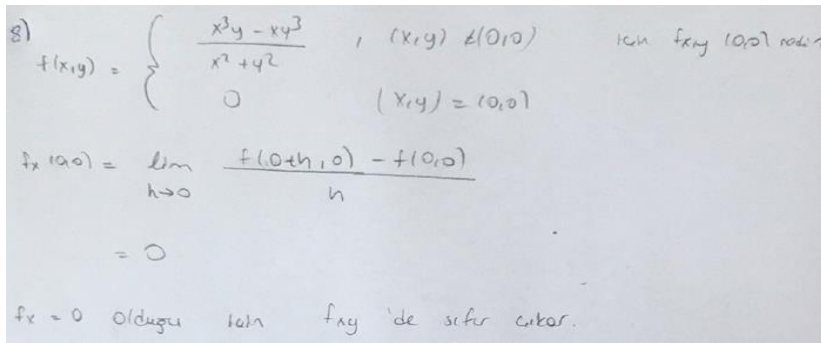 8)
f(x,y) = { (x³y - xy³) / (x² + y²) , (x,y) ≠ (0,0) için fxy (0,0)
0 (x,y) = (0,0)
fx (0,0) = lim h→0 (f(0+h, 0) - f(0,0)) / h
= 0
fx = 0 olduğu için fxy 'de sıfır çıkar.